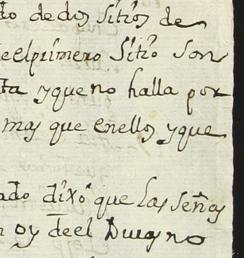 do de dos sitios de
e el primero sitio son
ta y que no halla por
mas que en ellos y que
ado dixo que las señas
n oy de el